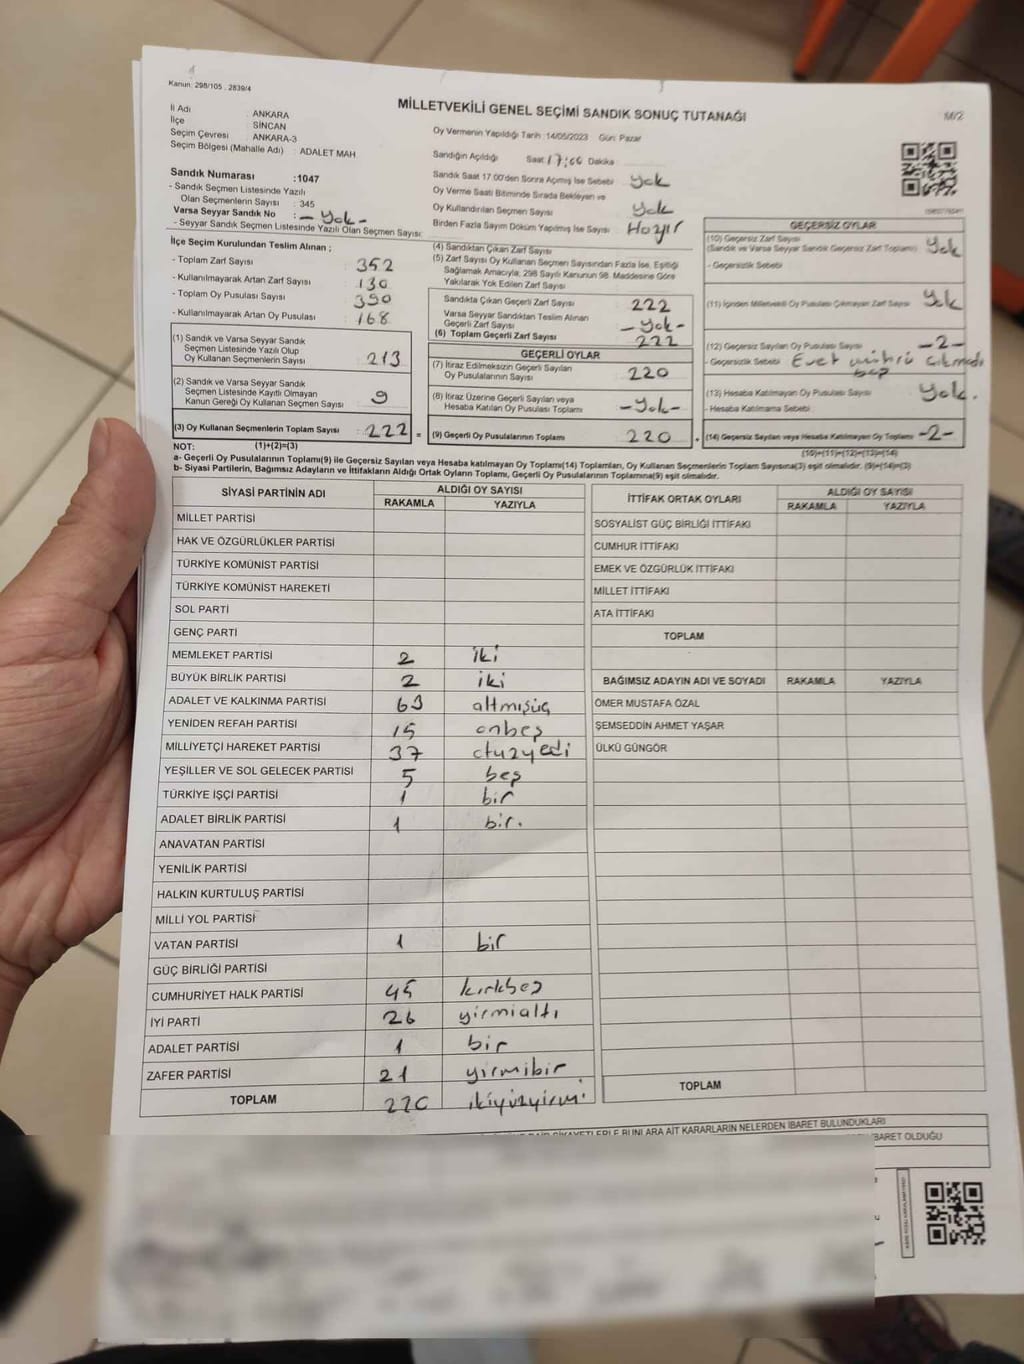 Kanun: 298/105 . 2839/4
MİLLETVEKİLİ GENEL SEÇİMİ SANDIK SONUÇ TUTANAĞI
M/2
İl Adı : ANKARA
İlçe : SİNCAN
Seçim Çevresi : ANKARA-3
Seçim Bölgesi (Mahalle Adı) : ADALET MAH
Sandık Numarası :1047
- Sandık Seçmen Listesinde Yazılı
Olan Seçmenlerin Sayısı : 345
Varsa Seyyar Sandık No : - Yok -
- Seyyar Sandık Seçmen Listesinde Yazılı Olan Seçmen Sayısı:
Oy Vermenin Yapıldığı Tarih :14/05/2023 Gün: Pazar
Sandığın Açıldığı Saat 17:00 Dakika
Sandık Saat 17.00'den Sonra Açılmış İse Sebebi Yok
Oy Verme Saati Bitiminde Sırada Bekleyen ve
Oy Kullandırılan Seçmen Sayısı Yok
Birden Fazla Sayım Döküm Yapılmış İse Sayısı : Hayır
İlçe Seçim Kurulundan Teslim Alınan ;
- Toplam Zarf Sayısı : 352
- Kullanılmayarak Artan Zarf Sayısı : 130
- Toplam Oy Pusulası Sayısı : 390
- Kullanılmayarak Artan Oy Pusulası : 168
(1) Sandık ve Varsa Seyyar Sandık
Seçmen Listesinde Yazılı Olup
Oy Kullanan Seçmenlerin Sayısı : 213
(2) Sandık ve Varsa Seyyar Sandık
Seçmen Listesinde Kayıtlı Olmayan
Kanun Gereği Oy Kullanan Seçmen Sayısı : 9
(3) Oy Kullanan Seçmenlerin Toplam Sayısı : 222 =
(4) Sandıktan Çıkan Zarf Sayısı :
(5) Zarf Sayısı Oy Kullanan Seçmen Sayısından Fazla İse, Eşitliği
Sağlamak Amacıyla, 298 Sayılı Kanunun 98. Maddesine Göre
Yakılarak Yok Edilen Zarf Sayısı :
Sandıkta Çıkan Geçerli Zarf Sayısı : 222
Varsa Seyyar Sandıktan Teslim Alınan
Geçerli Zarf Sayısı : -Yok-
(6) Toplam Geçerli Zarf Sayısı : 222
GEÇERLİ OYLAR
(7) İtiraz Edilmeksizin Geçerli Sayılan
Oy Pusulalarının Sayısı : 220
(8) İtiraz Üzerine Geçerli Sayılan veya
Hesaba Katılan Oy Pusulası Toplamı : -Yok-
(9) Geçerli Oy Pusulalarının Toplamı : 220
GEÇERSİZ OYLAR
(10) Geçersiz Zarf Sayısı
(Sandık ve Varsa Seyyar Sandık Geçersiz Zarf Toplamı) : Yok
- Geçersizlik Sebebi :
(11) İçinden Milletvekili Oy Pusulası Çıkmayan Zarf Sayısı : Yok
(12) Geçersiz Sayılan Oy Pusulası Sayısı : -2-
- Geçersizlik Sebebi : Evet mührü çıkmadı
(13) Hesaba Katılmayan Oy Pusulası Sayısı : Yok.
- Hesaba Katılmama Sebebi :
(14) Geçersiz Sayılan veya Hesaba Katılmayan Oy Toplamı : -2-
NOT: (1)+(2)=(3)
(10)+(11)+(12)+(13)=(14)
a- Geçerli Oy Pusulalarının Toplamı(9) ile Geçersiz Sayılan veya Hesaba katılmayan Oy Toplamı(14) Toplamları, Oy Kullanan Seçmenlerin Toplam Sayısına(3) eşit olmalıdır. (9)+(14)=(3)
b- Siyasi Partilerin, Bağımsız Adayların ve İttifakların Aldığı Ortak Oyların Toplamı, Geçerli Oy Pusulalarının Toplamına(9) eşit olmalıdır.
SİYASİ PARTİNİN ADI ALDIĞI OY SAYISI
RAKAMLA YAZIYLA
MİLLET PARTİSİ
HAK VE ÖZGÜRLÜKLER PARTİSİ
TÜRKİYE KOMÜNİST PARTİSİ
TÜRKİYE KOMÜNİST HAREKETİ
SOL PARTİ
GENÇ PARTİ
MEMLEKET PARTİSİ 2 iki
BÜYÜK BİRLİK PARTİSİ 2 iki
ADALET VE KALKINMA PARTİSİ 63 altmışüç
YENİDEN REFAH PARTİSİ 15 onbeş
MİLLİYETÇİ HAREKET PARTİSİ 37 otuzyedi
YEŞİLLER VE SOL GELECEK PARTİSİ 5 beş
TÜRKİYE İŞÇİ PARTİSİ 1 bir
ADALET BİRLİK PARTİSİ 1 bir.
ANAVATAN PARTİSİ
YENİLİK PARTİSİ
HALKIN KURTULUŞ PARTİSİ
MİLLİ YOL PARTİSİ
VATAN PARTİSİ 1 bir
GÜÇ BİRLİĞİ PARTİSİ
CUMHURİYET HALK PARTİSİ 45 kırkbeş
İYİ PARTİ 26 yirmialtı
ADALET PARTİSİ 1 bir
ZAFER PARTİSİ 21 yirmibir
TOPLAM 220 ikiyüzyirmi
İTTİFAK ORTAK OYLARI ALDIĞI OY SAYISI
RAKAMLA YAZIYLA
SOSYALİST GÜÇ BİRLİĞİ İTTİFAKI
CUMHUR İTTİFAKI
EMEK VE ÖZGÜRLÜK İTTİFAKI
MİLLET İTTİFAKI
ATA İTTİFAKI
TOPLAM
BAĞIMSIZ ADAYIN ADI VE SOYADI RAKAMLA YAZIYLA
ÖMER MUSTAFA ÖZAL
ŞEMSEDDİN AHMET YAŞAR
ÜLKÜ GÜNGÖR
TOPLAM
ŞİKAYETLERLE BUNLARA AİT KARARLARIN NELERDEN İBARET BULUNDUKLARI
İBARET OLDUĞU